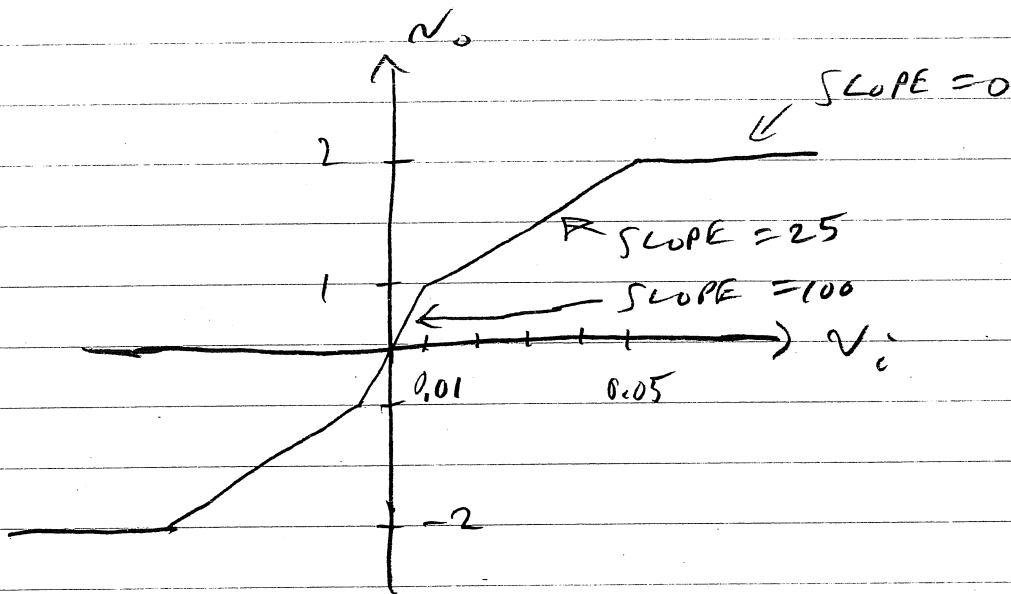 v₀
SLOPE = 0
2
SLOPE = 25
1
SLOPE = 100
vᵢ
0.01
0.05
-2